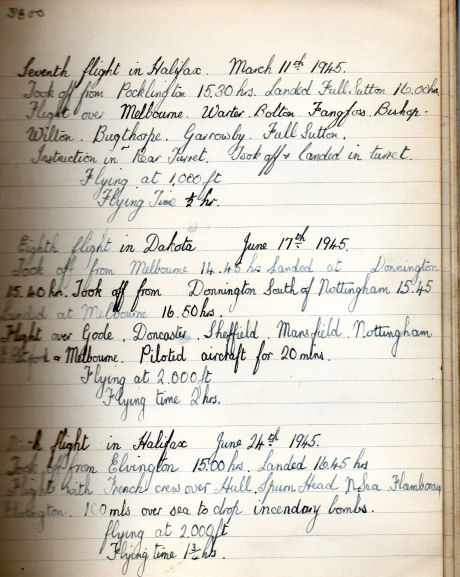 3800
Seventh flight in Halifax. March 11th 1945.
Took off from Pocklington 15.30 hrs. Landed Full Sutton 16.00 hrs
Flight over Melbourne. Warter. Bolton. Fangfoss. Bishop-
Wilton. Bugthorpe. Garrowby. Full Sutton.
Instruction in Rear Turret. Took off + landed in turret.
Flying at 1,000 ft
Flying Time ½ hr.
Eighth flight in Dakota June 17th 1945.
Took off from Melbourne 14.45 hrs Landed at Donnington
15.40 hr. Took off from Donnington South of Nottingham 15.45
Landed at Melbourne 16.50 hrs.
Flight over Goole, Doncaster, Sheffield, Mansfield, Nottingham
& Melbourne. Piloted aircraft for 20 mins.
Flying at 2.000 ft
Flying time 2 hrs.
flight in Halifax June 24th 1945.
Took off from Elvington 15.00 hrs. Landed 16.45 hrs
Flight with French crew over Hull, Spurn Head N.Sea. Flamborough
Elvington. 100 mls over sea to drop incendary bombs.
flying at 2.000 ft
Flying time 1¾ hrs.